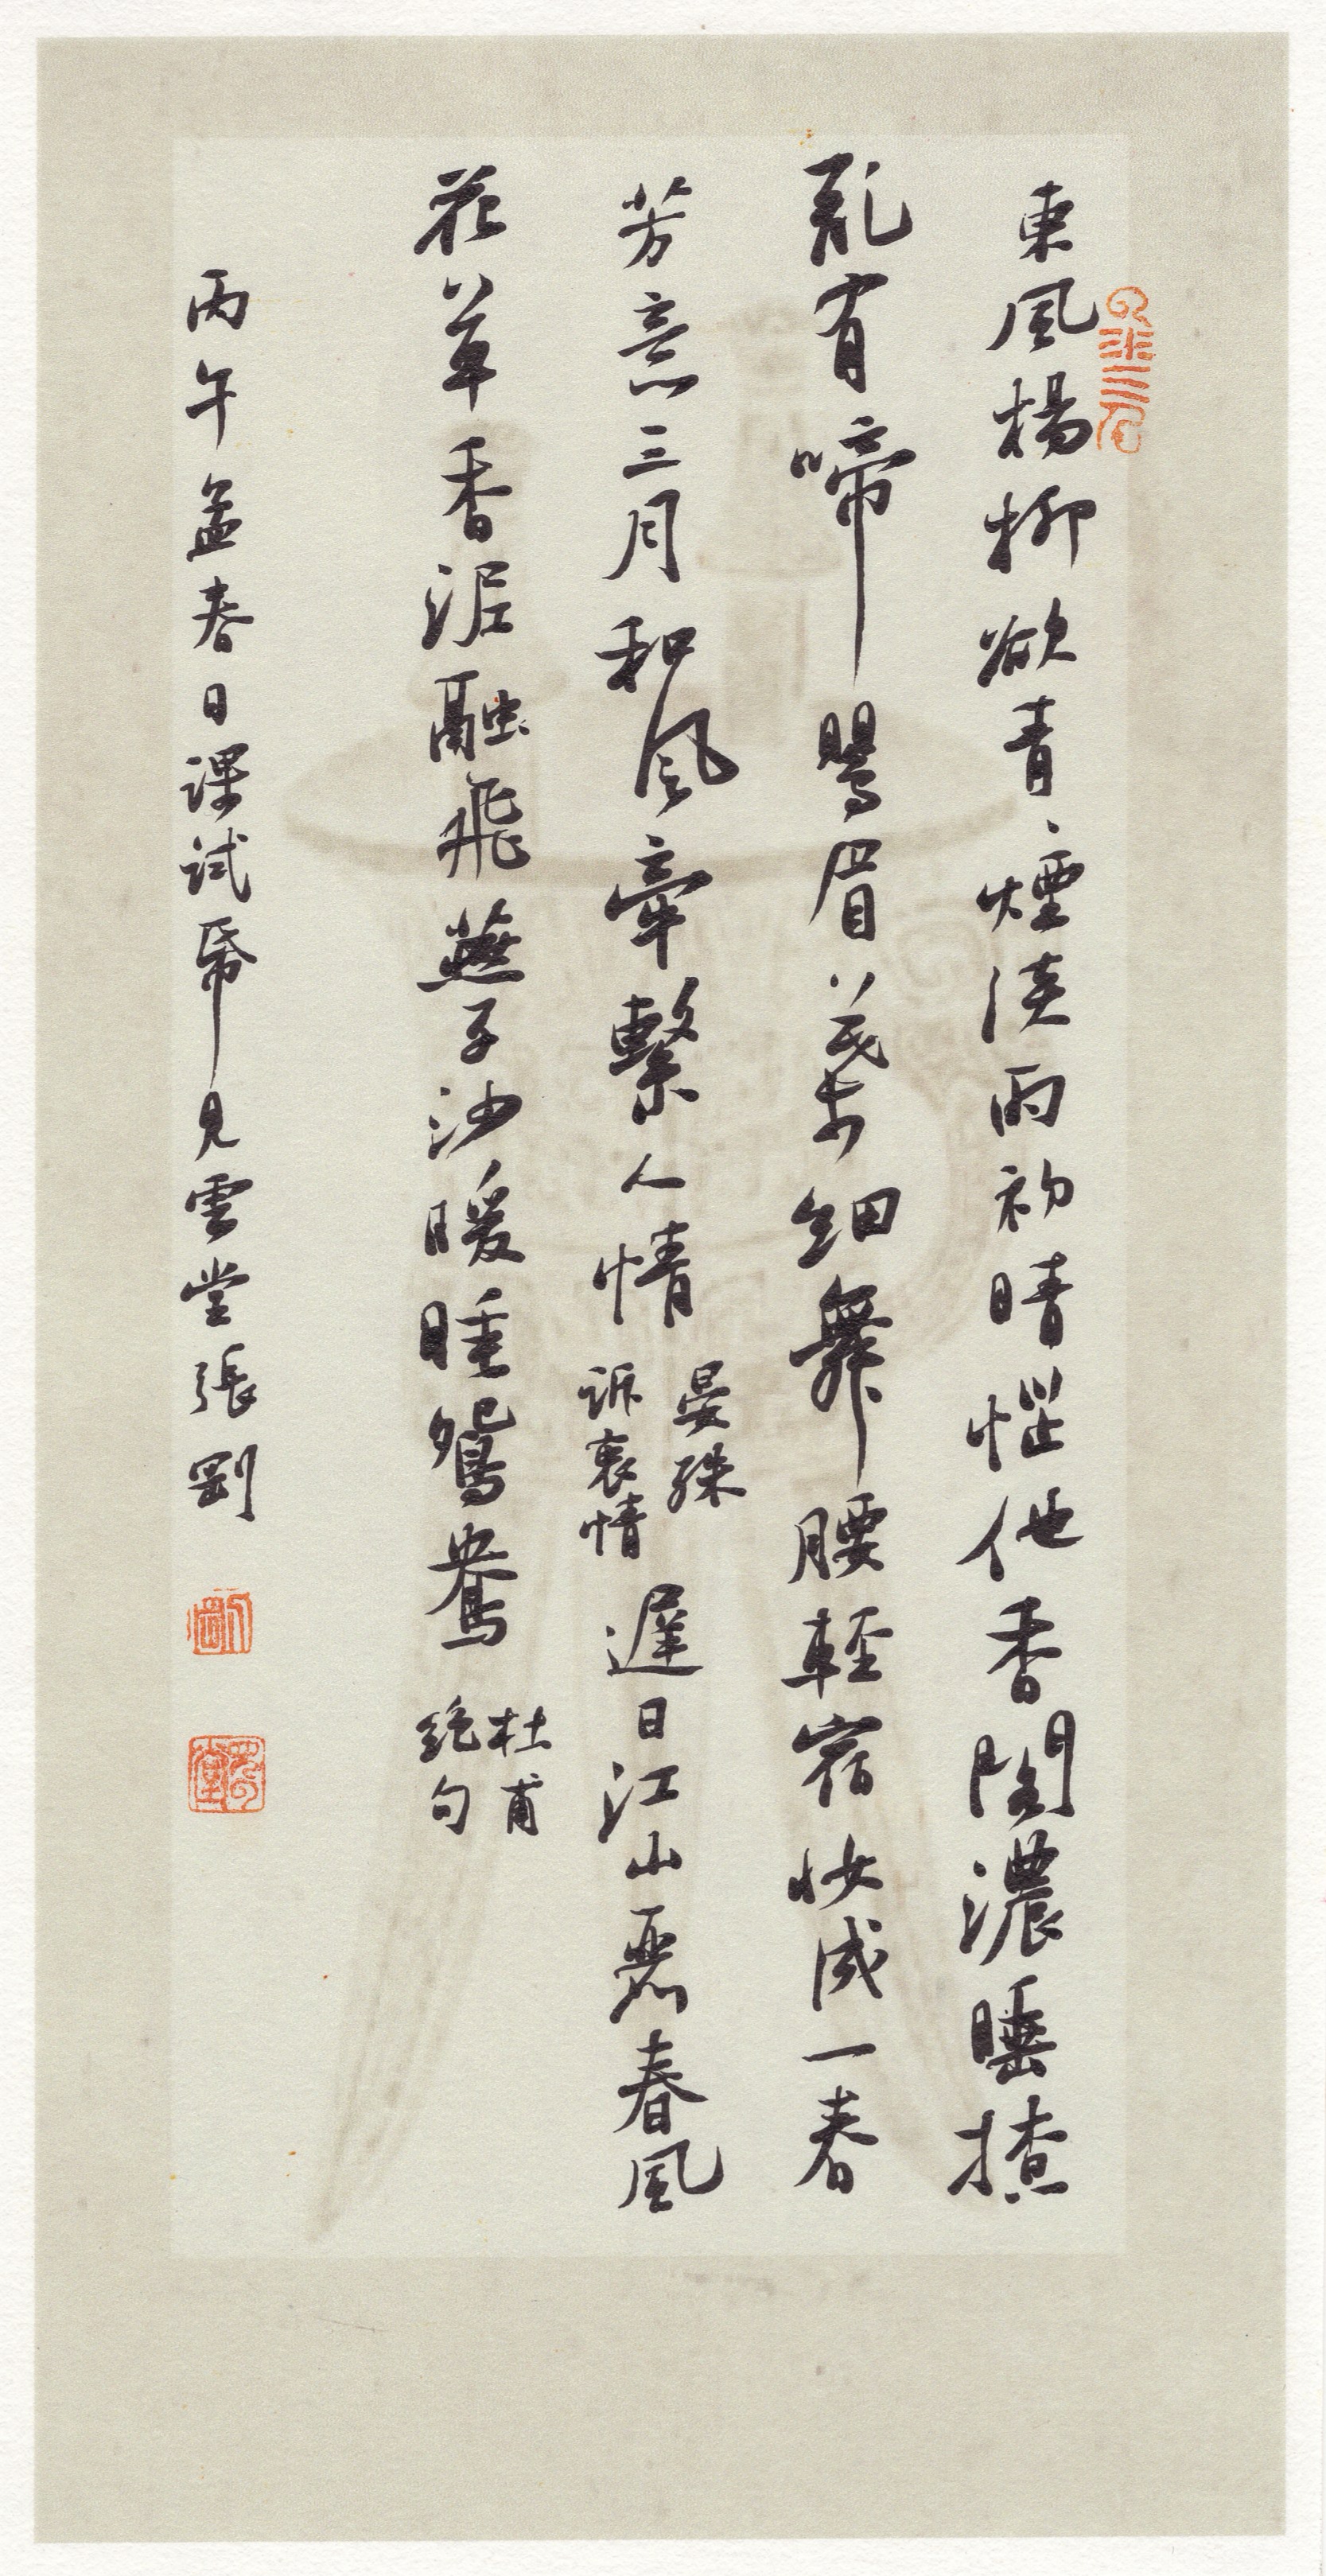 東風楊柳欲青、煙淡雨初晴惱他香閣濃睡撩
亂有啼鶯眉葉細舞腰輕宿妝成一春
芳意三月和風牽繫人情
晏殊
訴衷情
遲日江山麗春風
花草香泥融飛燕子沙暖睡鴛鴦
杜甫
絕句
丙午孟春日課試帋見雲堂張剛